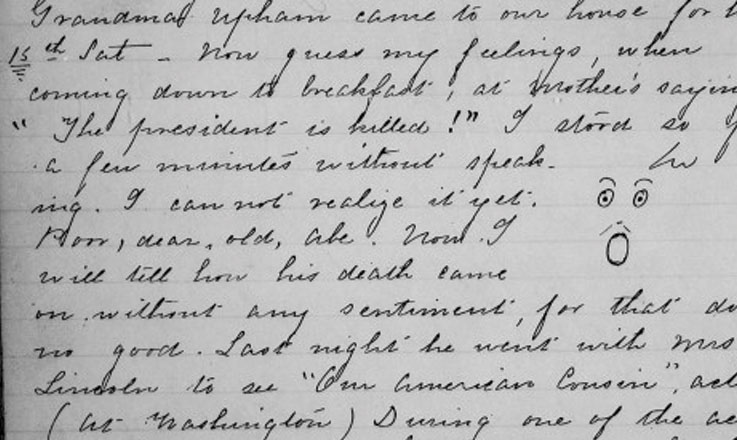 Grandma Upham came to our house for
15th Sat - Now guess my feelings, when
coming down to breakfast, at Mother's saying
"The president is killed!" I stood so
a few minutes without speak-
ing. I can not realize it yet.
Poor, dear, old, Abe. Now I
will tell how his death came
on without any sentiment, for that do
no good. Last night he went with Mrs
Lincoln to see "Our American Cousin",
(at Washington) During one of the